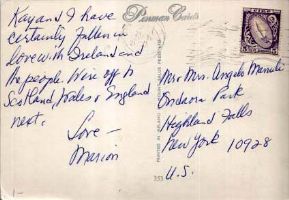 Kay and I have
certainly fallen in
love with Ireland and
the people. We're off to
Scotland, Wales & England
next.
Love -
Marion
Penman Cards
Mr & Mrs. Angelo
Park
Highland Falls
New York 10928
U.S.
353